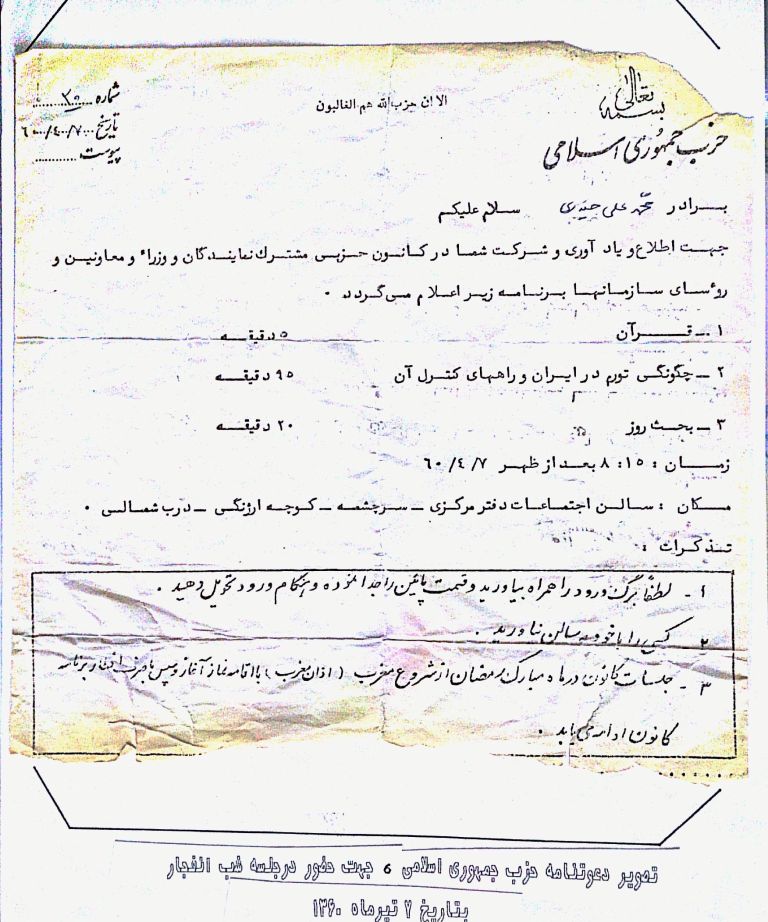 بسمه تعالی
الا ان حزب الله هم الغالبون
شماره ۳۰
تاریخ ۶۰/۴/۷
پیوست
حزب جمهوری اسلامی
برادر محمد علی سلام علیکم
جهت اطلاع و یاد آوری و شرکت شما در کانون حزبی مشترک نمایندگان و وزراء و معاونین و
روءسای سازمانها برنامه زیر اعلام می‌گردد .
۱ ــ قــرآن ۵ دقیقه
۲ ــ چگونگی تورم در ایران و راههای کنترل آن ۹۵ دقیقه
۳ ــ بحث روز ۲۰ دقیقه
زمــان : ۸:۱۵ بعد از ظهر ۶۰/۴/۷
مکان : سالن اجتماعات دفتر مرکزی ــ سرچشمه ــ کوجه ارژنگی ــ درب شمالی .
تذکرات :
۱ - لطفاً برگ ورود را همراه بیاورید و قسمت پائین را جدا نموده و هنگام ورود تحویل دهید .
۲ - کسی را با خود به سالن نیاورید .
۳ - جلسات کانون در ماه مبارک رمضان از شروع مغرب (اذان مغرب) با اقامه نماز آغاز و سپس با صرف افطار برنامه
کانون ادامه می‌یابد .
تصویر دعوتنامه حزب جمهوری اسلامی ، جهت حضور در جلسه شب انفجار
بتاریخ ۷ تیرماه ۱۳۶۰